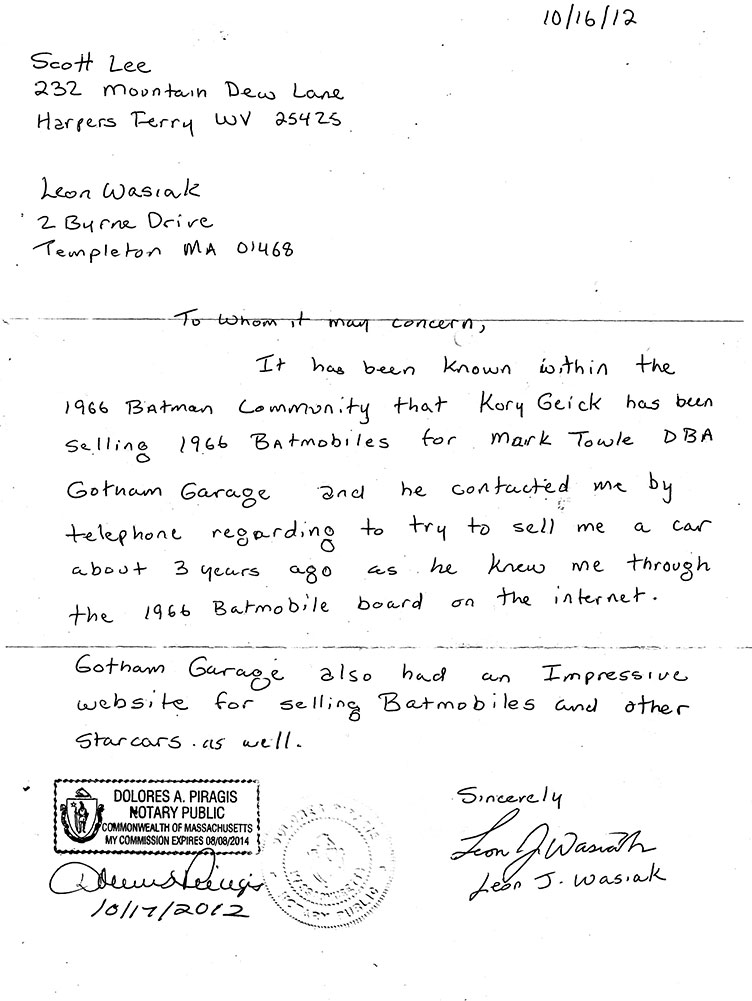 10/16/12
Scott Lee
232 Mountain Dew Lane
Harpers Ferry WV 25425
Leon Wasiak
2 Byrne Drive
Templeton MA 01468
To whom it may concern,
It has been known within the
1966 Batman Community that Kory Geick has been
selling 1966 Batmobiles for Mark Towle DBA
Gotham Garage and he contacted me by
telephone regarding to try to sell me a car
about 3 years ago as he knew me through
the 1966 Batmobile board on the internet.
Gotham Garage also had an Impressive
website for selling Batmobiles and other
Starcars as well.
DOLORES A. PIRAGIS
NOTARY PUBLIC
COMMONWEALTH OF MASSACHUSETTS
MY COMMISSION EXPIRES 08/08/2014
10/17/2012
NOTARY PUBLIC
Sincerely
Leon J. Wasiak
Leon J. Wasiak